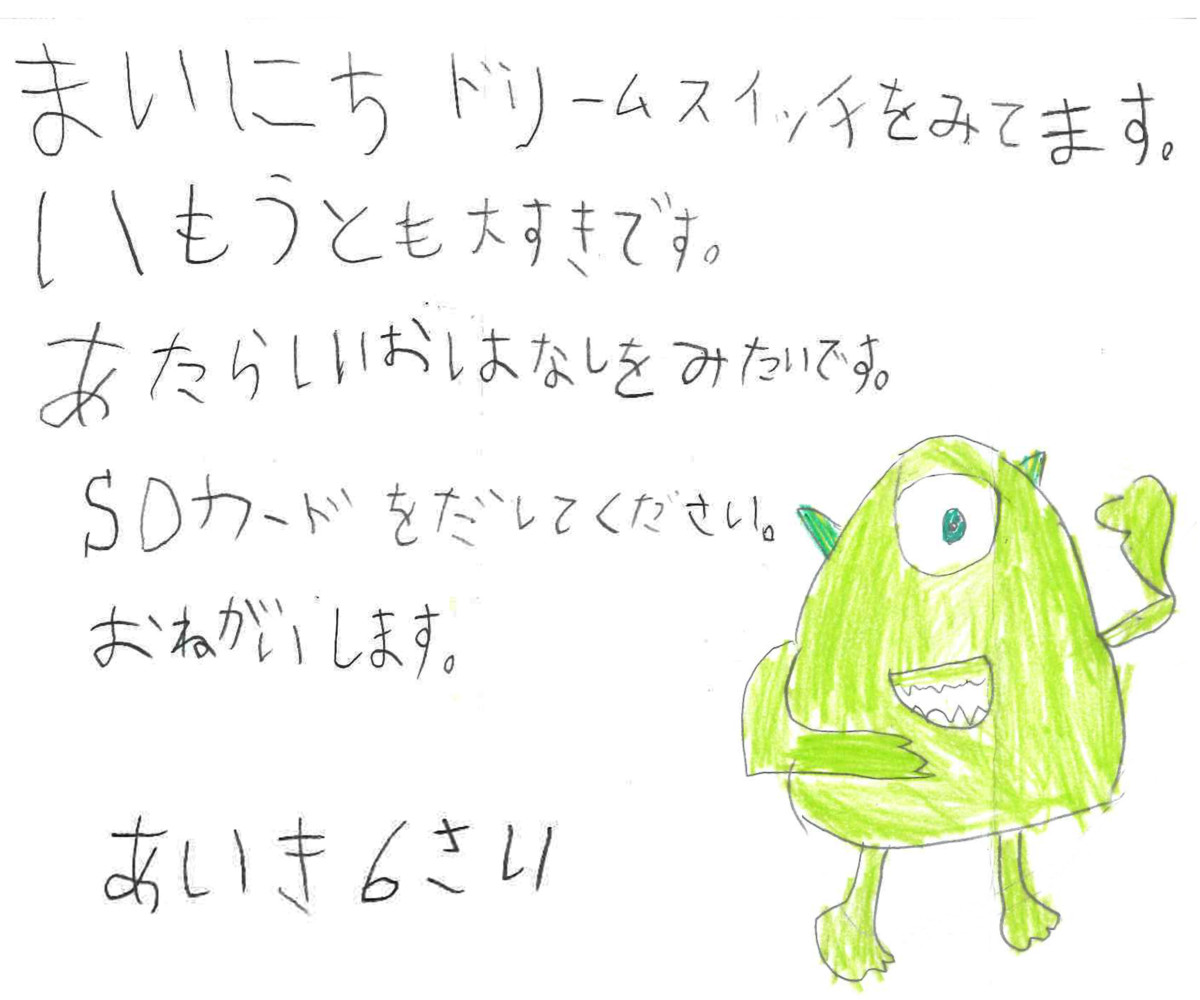 まいにち ドリームスイッチをみてます。
いもうとも大すきです。
あたらしいおはなしをみたいです。
SDカードをだしてください。
おねがいします。
あいき6さい